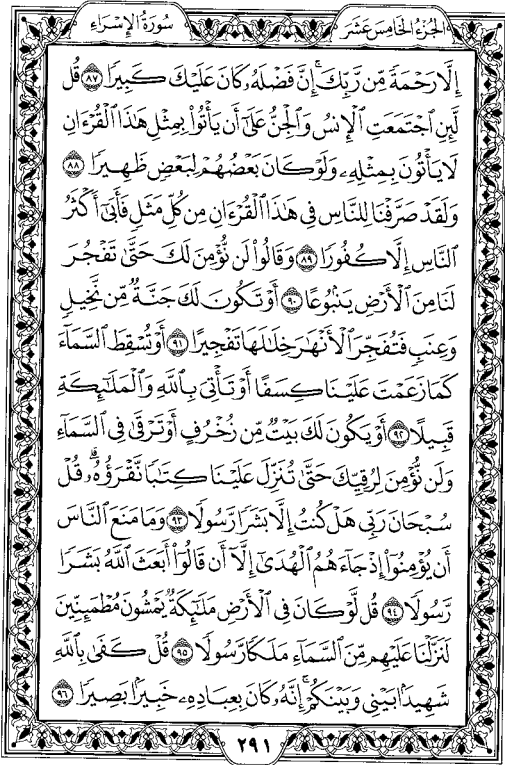 سُورَةُ الإِسْرَاءِ الجُزْءُ الخَامِسَ عَشَرَ
إِلَّا رَحْمَةً مِّن رَّبِّكَ ۚ إِنَّ فَضْلَهُۥ كَانَ عَلَيْكَ كَبِيرًا ۝٨٧ قُل
لَّئِنِ ٱجْتَمَعَتِ ٱلْإِنسُ وَٱلْجِنُّ عَلَىٰٓ أَن يَأْتُوا۟ بِمِثْلِ هَٰذَا ٱلْقُرْءَانِ
لَا يَأْتُونَ بِمِثْلِهِۦ وَلَوْ كَانَ بَعْضُهُمْ لِبَعْضٍ ظَهِيرًا ۝٨٨
وَلَقَدْ صَرَّفْنَا لِلنَّاسِ فِى هَٰذَا ٱلْقُرْءَانِ مِن كُلِّ مَثَلٍ فَأَبَىٰٓ أَكْثَرُ
ٱلنَّاسِ إِلَّا كُفُورًا ۝٨٩ وَقَالُوا۟ لَن نُّؤْمِنَ لَكَ حَتَّىٰ تَفْجُرَ
لَنَا مِنَ ٱلْأَرْضِ يَنۢبُوعًا ۝٩٠ أَوْ تَكُونَ لَكَ جَنَّةٌ مِّن نَّخِيلٍ
وَعِنَبٍ فَتُفَجِّرَ ٱلْأَنْهَٰرَ خِلَٰلَهَا تَفْجِيرًا ۝٩١ أَوْ تُسْقِطَ ٱلسَّمَآءَ
كَمَا زَعَمْتَ عَلَيْنَا كِسَفًا أَوْ تَأْتِىَ بِٱللَّهِ وَٱلْمَلَٰٓئِكَةِ
قَبِيلًا ۝٩٢ أَوْ يَكُونَ لَكَ بَيْتٌ مِّن زُخْرُفٍ أَوْ تَرْقَىٰ فِى ٱلسَّمَآءِ
وَلَن نُّؤْمِنَ لِرُقِيِّكَ حَتَّىٰ تُنَزِّلَ عَلَيْنَا كِتَٰبًا نَّقْرَؤُهُۥ ۗ قُلْ
سُبْحَانَ رَبِّى هَلْ كُنتُ إِلَّا بَشَرًا رَّسُولًا ۝٩٣ وَمَا مَنَعَ ٱلنَّاسَ
أَن يُؤْمِنُوٓا۟ إِذْ جَآءَهُمُ ٱلْهُدَىٰٓ إِلَّآ أَن قَالُوٓا۟ أَبَعَثَ ٱللَّهُ بَشَرًا
رَّسُولًا ۝٩٤ قُل لَّوْ كَانَ فِى ٱلْأَرْضِ مَلَٰٓئِكَةٌ يَمْشُونَ مُطْمَئِنِّينَ
لَنَزَّلْنَا عَلَيْهِم مِّنَ ٱلسَّمَآءِ مَلَكًا رَّسُولًا ۝٩٥ قُلْ كَفَىٰ بِٱللَّهِ
شَهِيدًۢا بَيْنِى وَبَيْنَكُمْ ۚ إِنَّهُۥ كَانَ بِعِبَادِهِۦ خَبِيرًۢا بَصِيرًا ۝٩٦
٢٩١